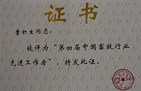 证书
曹积生同志：
被评为“第四届中国畜牧行业
先进工作者”，特发此证。